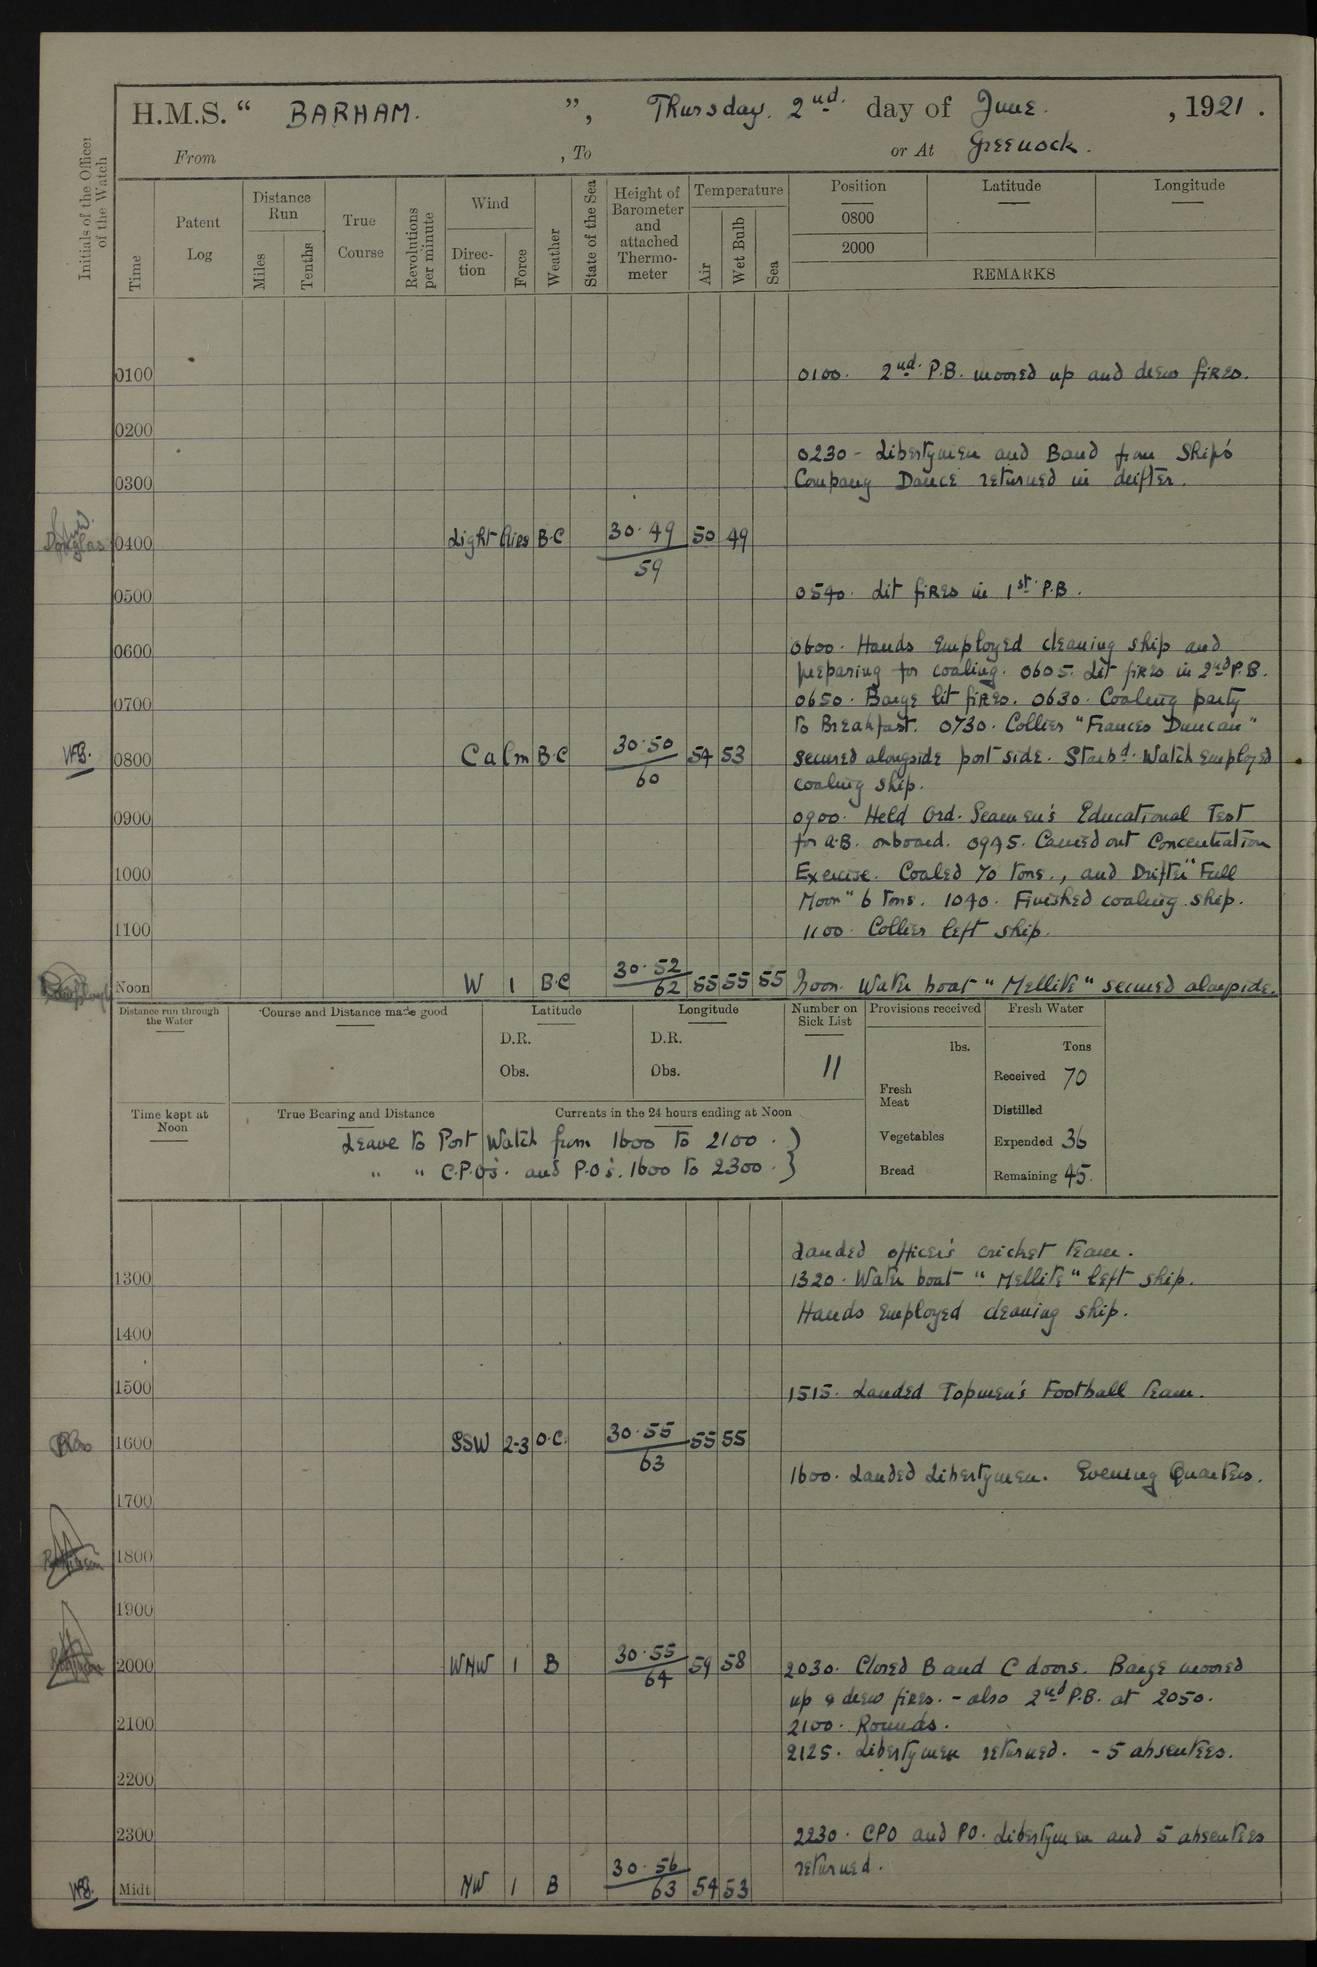 H.M.S. “ BARHAM. ”, Thursday. 2nd. day of June. , 1921.
From , To or At Greenock.
Initials of the Officer of the Watch
Time
Patent Log
Distance Run
Miles
Tenths
True Course
Revolutions per minute
Wind
Direction
Force
Weather
State of the Sea
Height of Barometer and attached Thermometer
Temperature
Air
Wet Bulb
Sea
Position Latitude Longitude
0800
2000
REMARKS
0100 0100. 2nd. P.B. moored up and drew fires.
0200
0230 - Libertymen and Band from Ship's
0300 Company Dance returned in drifter.
Douglas 0400 Light Airs B.C 30.49 50 49
59
0500 0540. Lit fires in 1st. P.B.
0600 0600. Hands employed cleaning ship and
preparing for coaling. 0605. Lit fires in 2nd P.B.
0700 0650. Barge lit fires. 0630. Coaling party
to Breakfast. 0730. Collier "Frances Duncan"
0800 Calm B.C 30.50 54 53 secured alongside port side. Starbd. Watch employed
60 coaling ship.
0900 0900. Held Ord. Seamen's Educational Test
for A.B. onboard. 0945. Carried out Concentration
1000 Exercise. Coaled 70 tons., and Drifter "Full
Moon" 6 tons. 1040. Finished coaling ship.
1100 1100. Collier left ship.
Noon W 1 B.C 30.52 55 55 55 Noon. Water boat "Mellite" secured alongside.
62
Distance run through the Water
Course and Distance made good
Latitude
D.R.
Obs.
Longitude
D.R.
Obs.
Number on Sick List
11
Provisions received
lbs.
Fresh Meat
Vegetables
Bread
Fresh Water
Tons
Received 70
Distilled
Expended 36
Remaining 45.
Time kept at Noon
True Bearing and Distance
Currents in the 24 hours ending at Noon
Leave to Port Watch from 1600 to 2100. }
" " C.P.O's. and P.O's. 1600 to 2300. }
Landed officer's cricket team.
1300 1320. Water boat "Mellite" left ship.
Hands employed cleaning ship.
1400
1500 1515. Landed Topmen's Football Team.
1600 SSW 2-3 O.C. 30.55 55 55
63
1600. Landed Libertymen. Evening Quarters.
1700
1800
1900
2000 WNW 1 B 30.55 59 58 2030. Closed B and C doors. Barge moored
64 up & drew fires. - also 2nd P.B. at 2050.
2100 2100. Rounds.
2125. Libertymen returned. - 5 absentees.
2200
2300 2230. CPO and PO. Libertymen and 5 absentees
returned.
Midt. NW 1 B 30.56 54 53
63